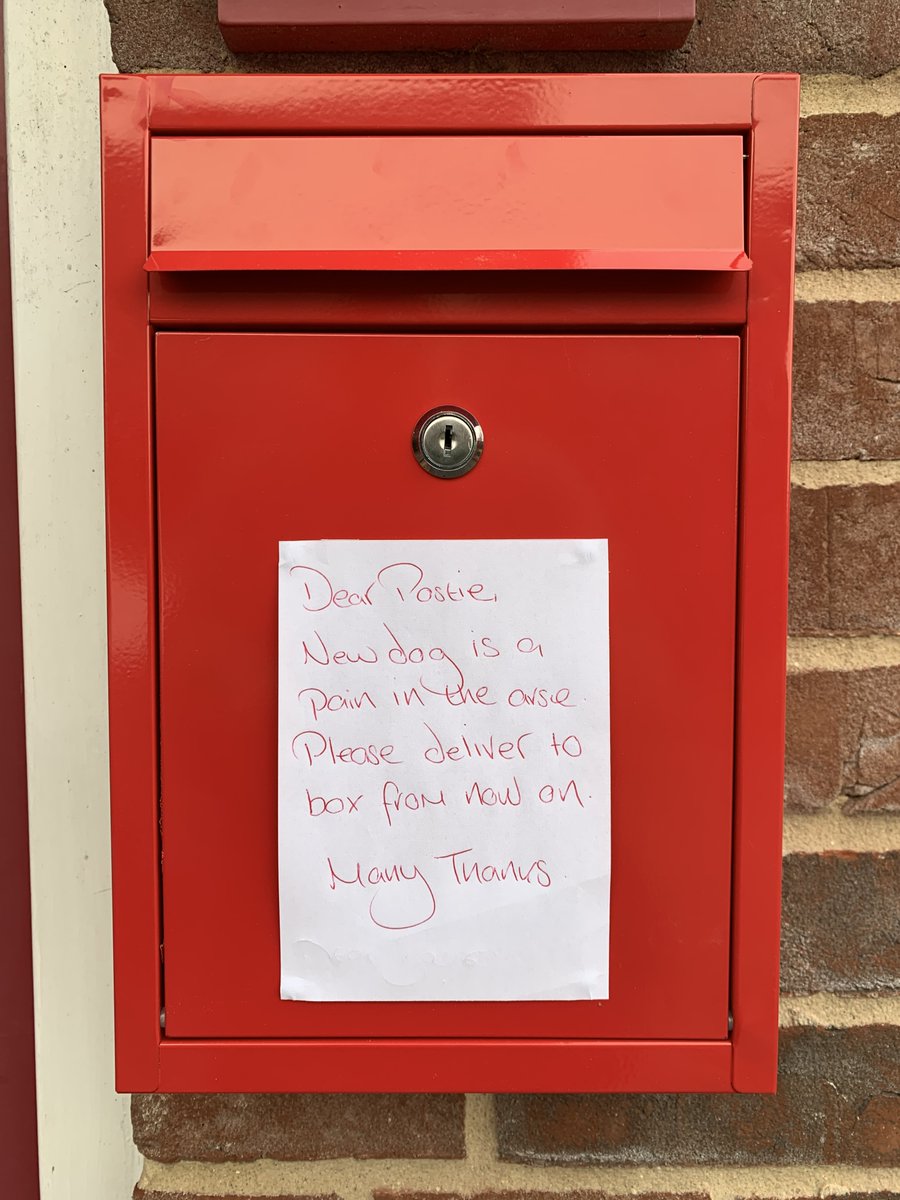 Dear Postie,
New dog is a
pain in the arse.
Please deliver to
box from now on.
Many Thanks.